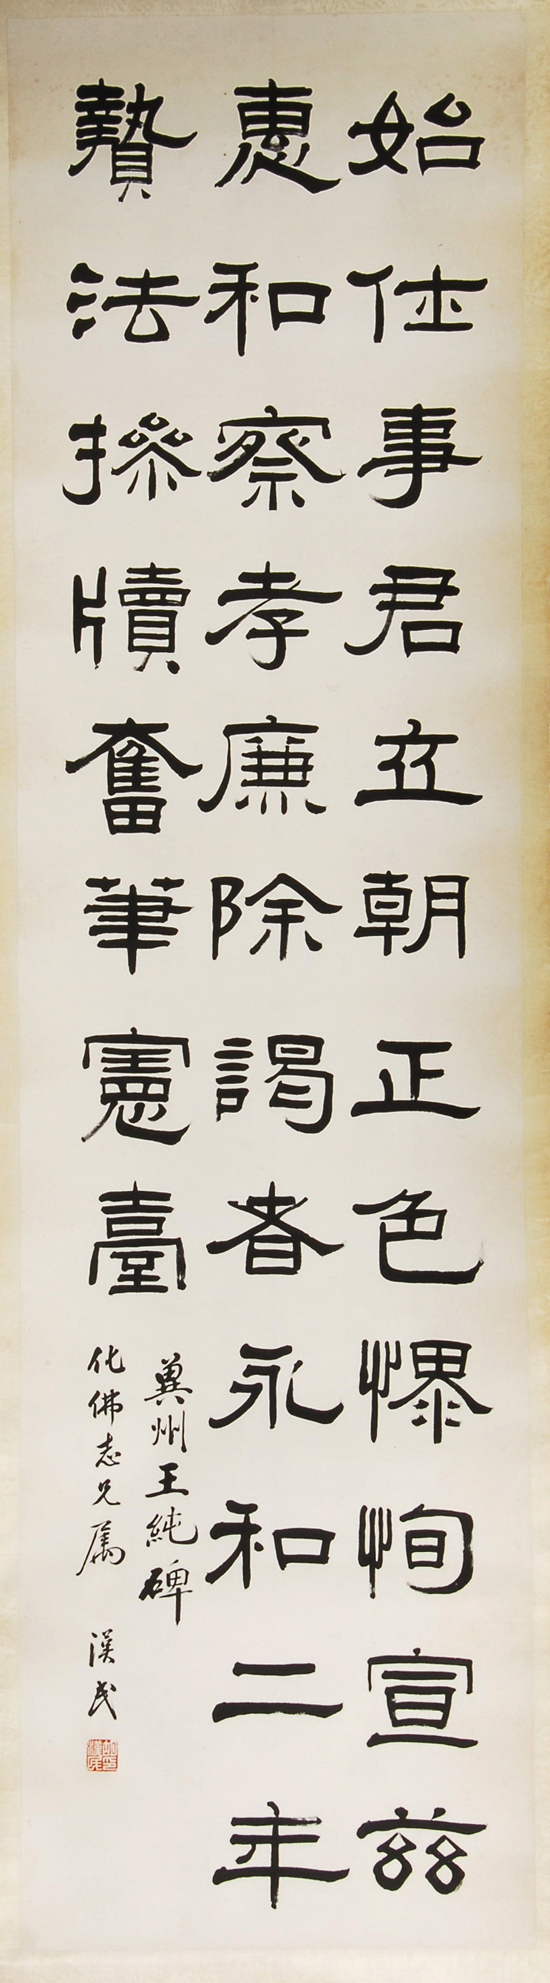 始仕事君立朝正色慓恂宣兹
惠和察孝廉除謁者永和二年
贄法操牘奮筆憲臺
冀州王純碑
化佛志兄属
漢民